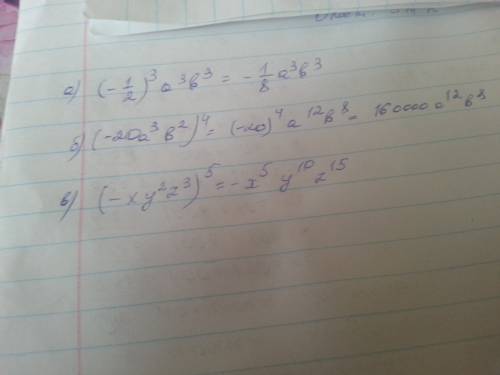 а) (-1/2)³ a³b³ = -1/8 a³b³
б) (-20a³b²)⁴ = (-20)⁴ a¹²b⁸ = 160000 a¹²b⁸
в) (-xy²z³)⁵ = -x⁵ y¹⁰ z¹⁵